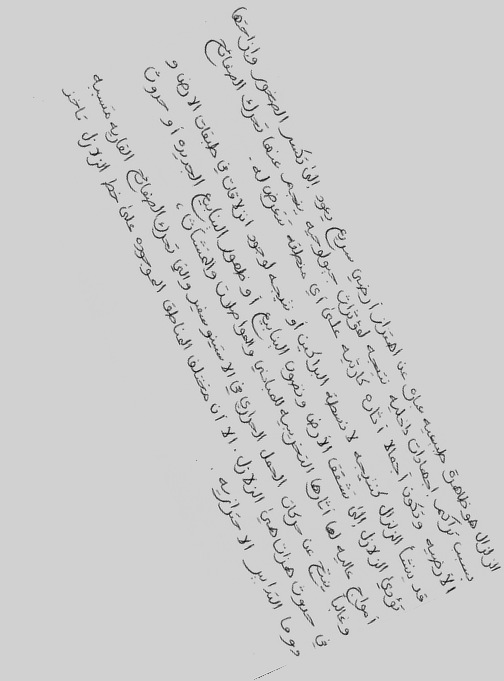 الزلزال هو ظاهرة طبيعيه عباره عن اهتزاز أرضي سريع يعود إلى تكسر الصخور وإزاحتها
بسبب تراكم اجهادات داخليه نتيجه لمؤثرات جيولوجيه ينجم عنها تحرك الصفائح
الأرضيه وتكون اجمالا آثاره كارثيه على أي منطقه تتعرض له.
قد ينشأ الزلزال كنتيجه لانشطة البراكين أو نتيجه لوجود انزلاقات في طبقات الارض و
تؤدي الزلازل إلى تشقق الأرض ونضوب الينابيع أو ظهور الينابيع الجديده أو حدوث
أمواج عاليه لها آثارها التخريبيه للمباني والمواصلات والمنشآت ،
وغالبا ينتج عن حركات الحمل الحراري في الاستينوسفير والتي تحرك الصفائح القاريه متسببه
في حدوث هزات هي الزلازل . الا أن مختلف المناطق الموجوده على خط الزلازل تأخذ
دوما التدابير الاحترازيه .